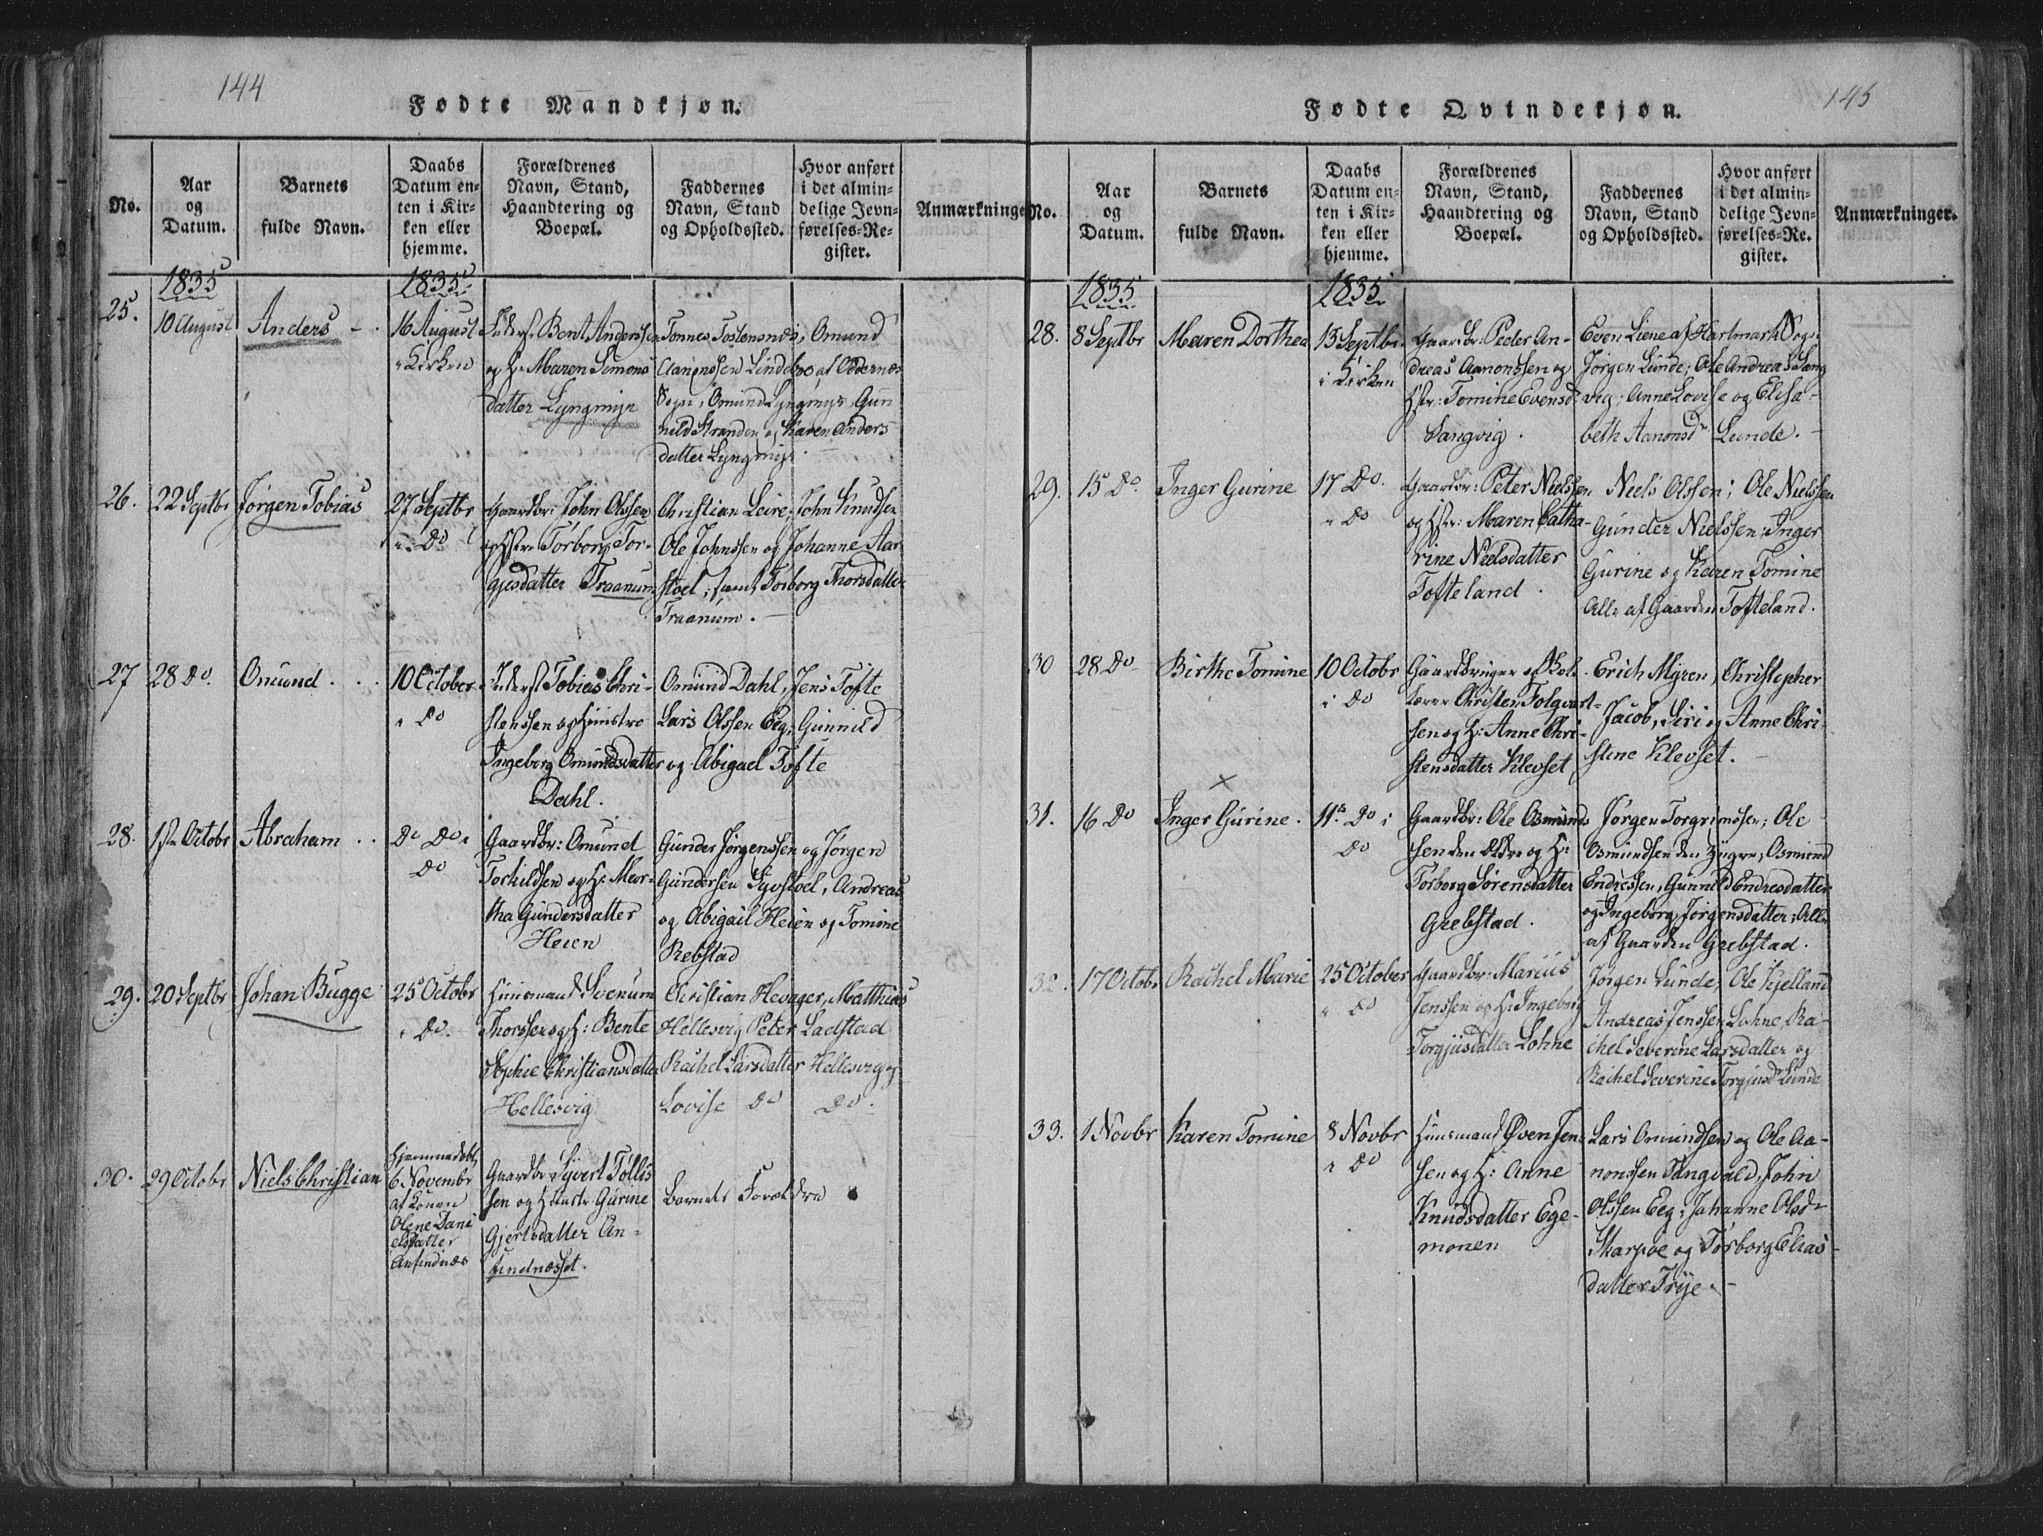 144
Fødte Mandkjøn.
No.
Aar
og
Datum.
Barnets
fulde Navn.
Daabs
Datum en-
ten i Kir-
ken eller
hjemme.
Forældrenes
Navn, Stand,
Haandtering og
Boepæl.
Faddernes
Navn, Stand
og Opholdssted.
Hvor anført
i det almin-
delige Jevn-
førelses-Re-
gister.
Anmærkninger
1835
1835
25.
10 August
Anders
16 August
i Kirken
Bent Anderssen
og H: Maren Simons
datter Lyngmyr
Tønnes Tostensnæs, Omund
Aanonssen Lindebo af Oddernæs
Sogn, Omund Lyngmyr, Gun
nild Stranden og Karen Anders
datter Lyngmyr.
26.
22 Septbr
Jørgen Tobias
27 Septbr
i Do
Gaardbr: John Olssen
og Hstr: Torborg Tor-
gjesdatter Traanum
Christian Leire, John Knudsen
Ole Johnssen og Johanne Aar
stoel, samt Torborg Thorsdatter
Traanum.
27
28 Do.
Omund
10 October
i Do
Tobias Chri-
stenssen og Hustro
Ingeborg Omundsdatter
Dahl.
Omund Dahl, Jens Tofte
Lars Olssen Eeg, Gunnild
og Abigael Tofte
28.
1ste Octobr
Abraham
Do Do i
Do
Gaardbr: Omund
Torkildsen og H: Mar-
tha Gundersdatter
Heien
Gunder Jørgenssen og Jørgen
Gundersen Sjostoel, Andreas
og Abigail Heien og Tomine
Rebstad
29.
20 Septbr
Johan Bugge
25 Octobr
i Do.
Huusmand Svenum
Thorssen og H: Bente
Sophie Christiansdatter
Hellesvig
Christian Hevager, Matthias
Hellesvig Peter Ladstad
Rachel Larsdatter Hellesvig og
Lovise Do Do.
30.
29 Octobr
Niels Christian
Hjemmedøbt
6 Novembr
af Konen
Olene Dani
elsdatter
Anfindnæs
Gaardbr: Syvert Tollis
sen og Hustr: Gurine
Gjertsdatter An-
findnæsset.
Barnets Forældre
145
Fødte Qvindekjøn.
No.
Aar
og
Datum.
Barnets
fulde Navn.
Daabs
Datum en-
ten i Kir-
ken eller
hjemme.
Forældrenes
Navn, Stand,
Haandtering og
Boepæl.
Faddernes
Navn, Stand
og Opholdssted.
Hvor anført
i det almin-
delige Jevn-
førelses-Re-
gister.
Anmærkninger.
1835
1835
28.
8 Septbr
Maren Dorthea
13 Septbr
i Kirken
Gaardbr: Peder An-
dreas Aanonssen og
Hstr: Tomine Evensd
Sangvig.
Even Liene af Hartmark Sogn
Jørgen Lunde; Ole Andreas Sang
vig; Anne Lovise og Elisa-
beth Aanonsdr Lunde.
29.
15 Do.
Inger Gurine
17 Do.
i Do
Gaardbr: Peter Nielssen
og Hstr: Maren Catha-
rine Nielsdatter
Tofteland.
Niels Olssen; Ole Nielssen
Gunder Nielssen, Inger
Gurine og Karen Tomine
Alle af Gaarden Tofteland.
30
28 Do
Birthe Tomine
10 Octobr
i Do
Gaardbruger og Skol-
lærer Christen Folqvart-
sen og H: Anne Chri-
stensdatter Klevset
Erich Myren, Christopher
Jacob, Siri og Anne Chri-
stine Klevset.
31.
16 Do
Inger Gurine.
11te Do i
Do
Gaardbr: Ole Osmunds
sen den Eldre og H:
Torborg Sørensdatter
Grebstad.
Jørgen Torgrimssen; Ole
Osmundsen den yngre, Osmund
Endressen, Gunnild Endresdatter
og Ingeborg Jørgensdatter, Alle
af Gaarden Grebstad.
32.
17 Octobr
Rachel Marie
25 October
i Do
Gaardbr: Marius
Jenssen og H: Ingeborg
Torgjusdatter Lohne
Jørgen Lunde, Ole Kjelland
Andreas Jenssen Lohne, Ra-
chel Severine Larsdatter og
Rachel Severine Torgjusdr Lunde
33.
1 Novbr
Karen Tomine
8 Novbr
i Do
Huusmand Øven Jen
sen og H: Anne
Knudsdatter Ege-
monen
Lars Omundsen og Ole Aa-
nonssen Tangvald, John
Olssen Eeg, Johanne Olsdr
Skarpoe og Torborg Elias-
datter Trye.